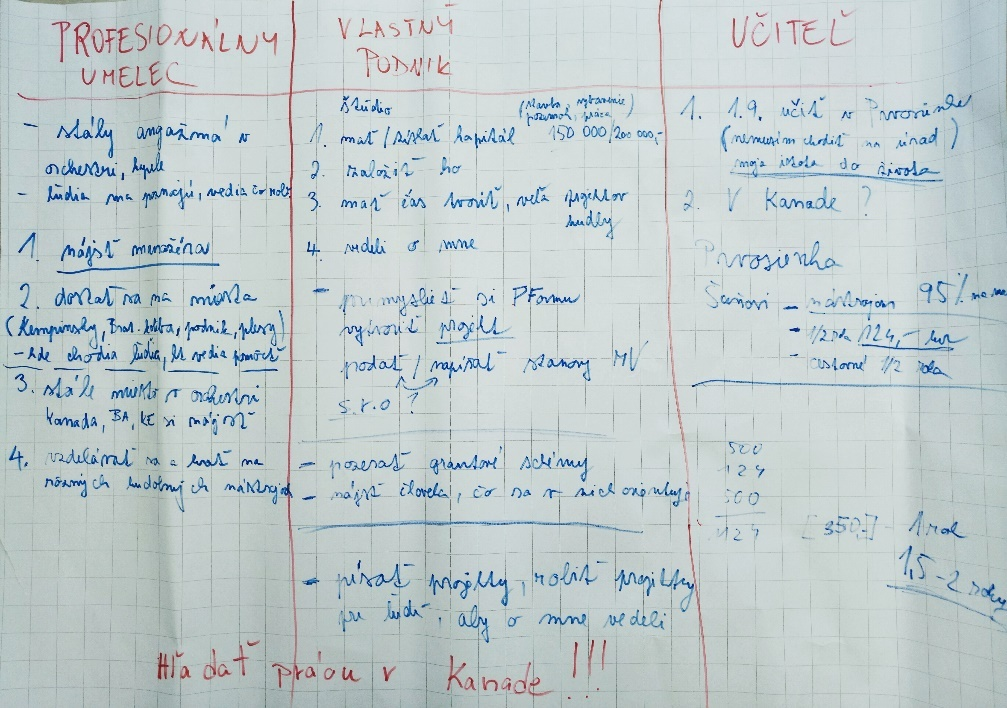 PROFESIONÁLNY
UMELEC
- stály angažmá v
orchestri, kapele
- ľudia ma poznajú, vedia čo robím
1. nájsť menažéra
2. dostať sa na miesta
(Kempinsky, Brat. koliba, podnik, plesy)
- kde chodia ľudia, čo vedia pomôcť
3. stále miesto v orchestri
Kanada, BA, KE si nájsť
4. vzdelávať sa a hrať na
rôznych hudobných nástrojoch
VLASTNÝ
PODNIK
Štúdio
(stavba, vybavenie)
pozemok, práca
1. mať / získať kapitál 150 000/200 000,-
2. založiť ho
3. mať čas tvoriť, veľa projektov
hudby
4. vedeli o mne
- premyslieť si PFormu
vytvoriť projekt
podať / napísať stanovy MV
s.r.o ?
- pozerať grantové schémy
- nájsť človeka, čo sa v nich orientuje
- písať projekty, robiť projekty
pre ľudí, aby o mne vedeli
UČITEĽ
1. 1.9. učiť v Prvosienke
(nemusím chodiť na úrad)
moja istota do života
2. V Kanade ?
Prvosienka
- nástrojom 95%
- 1/2 roka 124,- eur
- cestovné 1/2 roka
500
124
500
1124 [350,-] - 1 rok
1,5 - 2 roky
Hľadať prácu v Kanade !!!